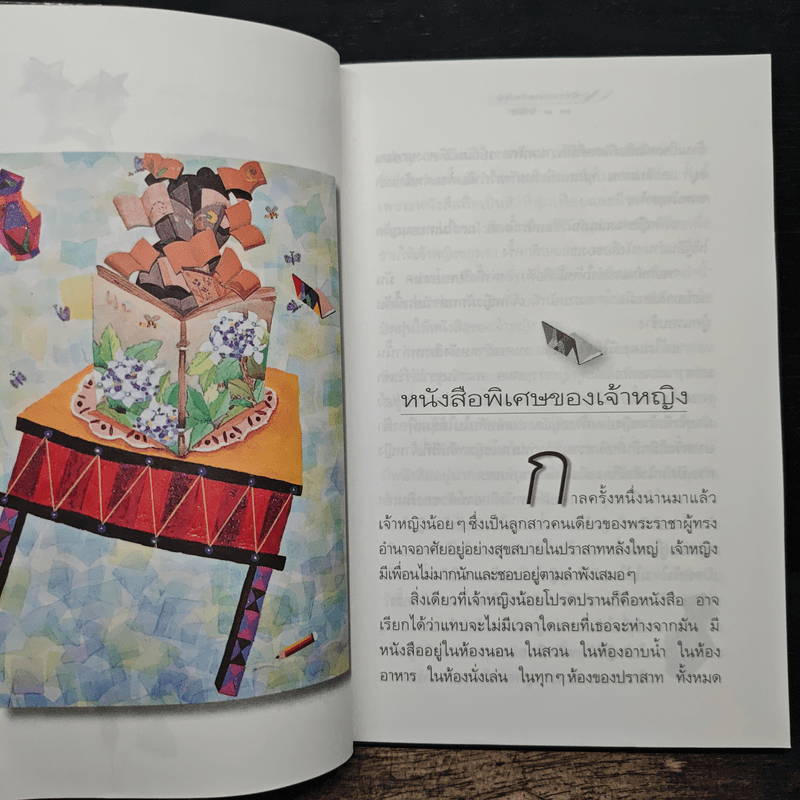 หนังสือพิเศษของเจ้าหญิง
กาลครั้งหนึ่งนานมาแล้ว
เจ้าหญิงน้อยๆ ซึ่งเป็นลูกสาวคนเดียวของพระราชาผู้ทรง
อำนาจอาศัยอยู่อย่างสุขสบายในปราสาทหลังใหญ่ เจ้าหญิง
มีเพื่อนไม่มากนักและชอบอยู่ตามลำพังเสมอๆ
สิ่งเดียวที่เจ้าหญิงน้อยโปรดปรานก็คือหนังสือ อาจ
เรียกได้ว่าแทบจะไม่มีเวลาใดเลยที่เธอจะห่างจากมัน มี
หนังสืออยู่ในห้องนอน ในสวน ในห้องอาบน้ำ ในห้อง
อาหาร ในห้องนั่งเล่น ในทุกๆ ห้องของปราสาท ทั้งหมด